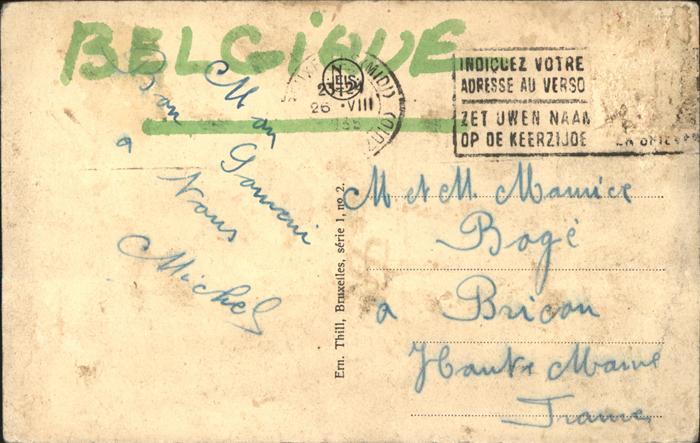 BELGIQUE
Mon
Bon
Souvenir
a Vous
Michel
(MIDI)
23-24
26 VIII
INDIQUEZ VOTRE
ADRESSE AU VERSO
ZET UWEN NAAM
OP DE KEERZIJDE
Ern. Thill, Bruxelles, série 1, no 2.
M et M. Maurice
Bogé
a Bricon
Haute Marne
France